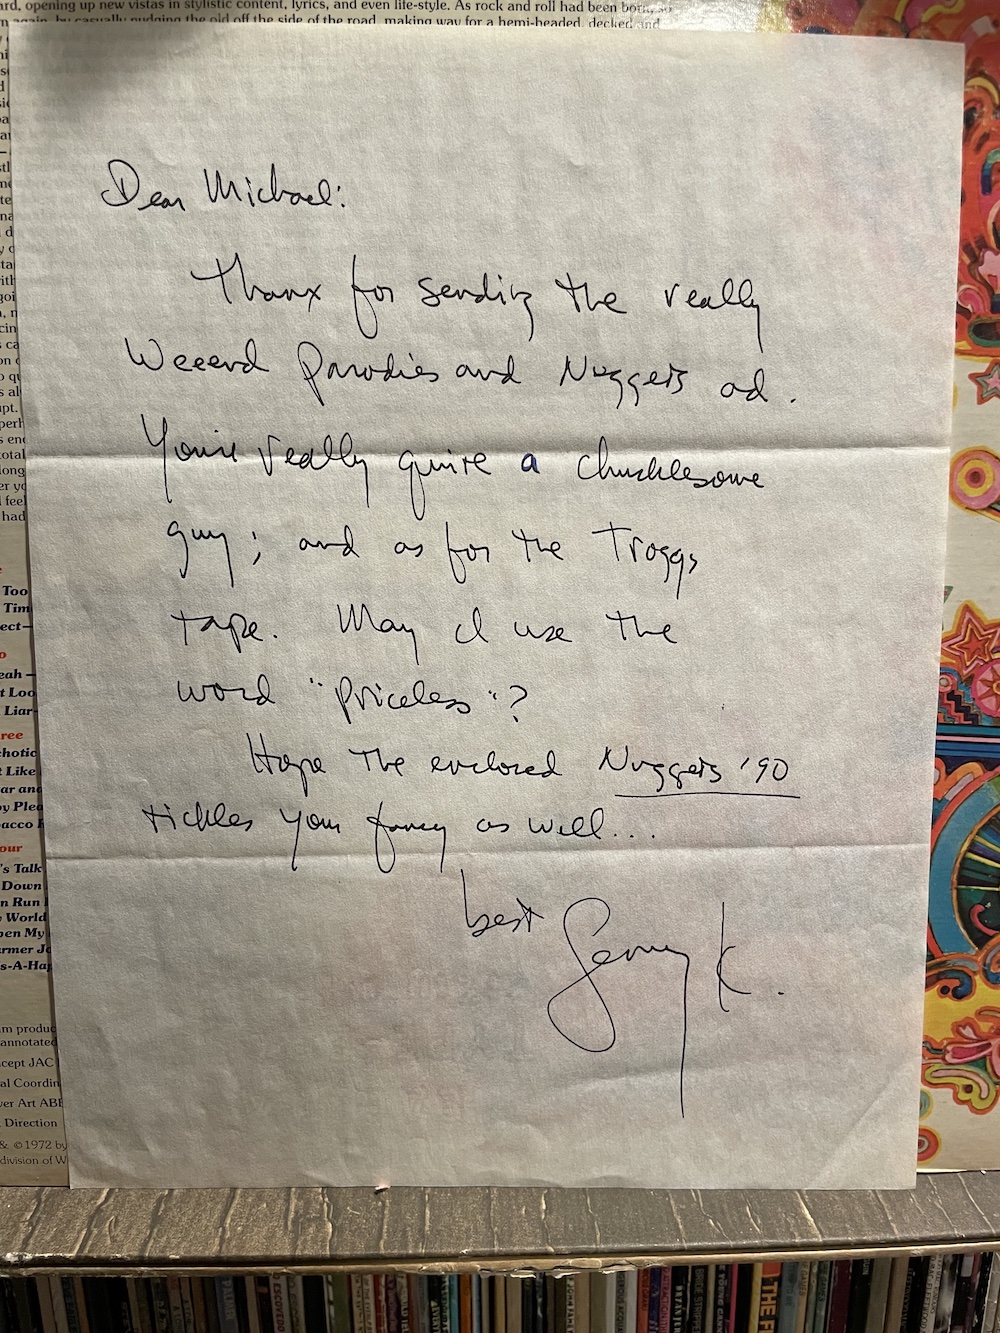 ard, opening up new vistas in stylistic content, lyrics, and even life-style. As rock and roll had been born, so
again, by casually nudging the old off the side of the road, making way for a hemi-headed, decked and
Dear Michael:
Thanx for sending the really
Weeerd Parodies and Nuggets ad.
You're really quite a chucklesome
guy; and as for the Troggs
tape. May I use the
word "Priceless"?
Hope the enclosed Nuggets '90
tickles your fancy as well...
best Lenny K.
Too
Tim
ect—
eah —
t Loo
Liar—
ree
hotic
t Like
ar and
by Plea
acco
our
's Talk
Down
n Run
World
pen My
armer J
s-A-Hap
m produc
annotated
cept JAC
al Coordin
ver Art AB
Direction
& © 1972 by
division of W
THE F